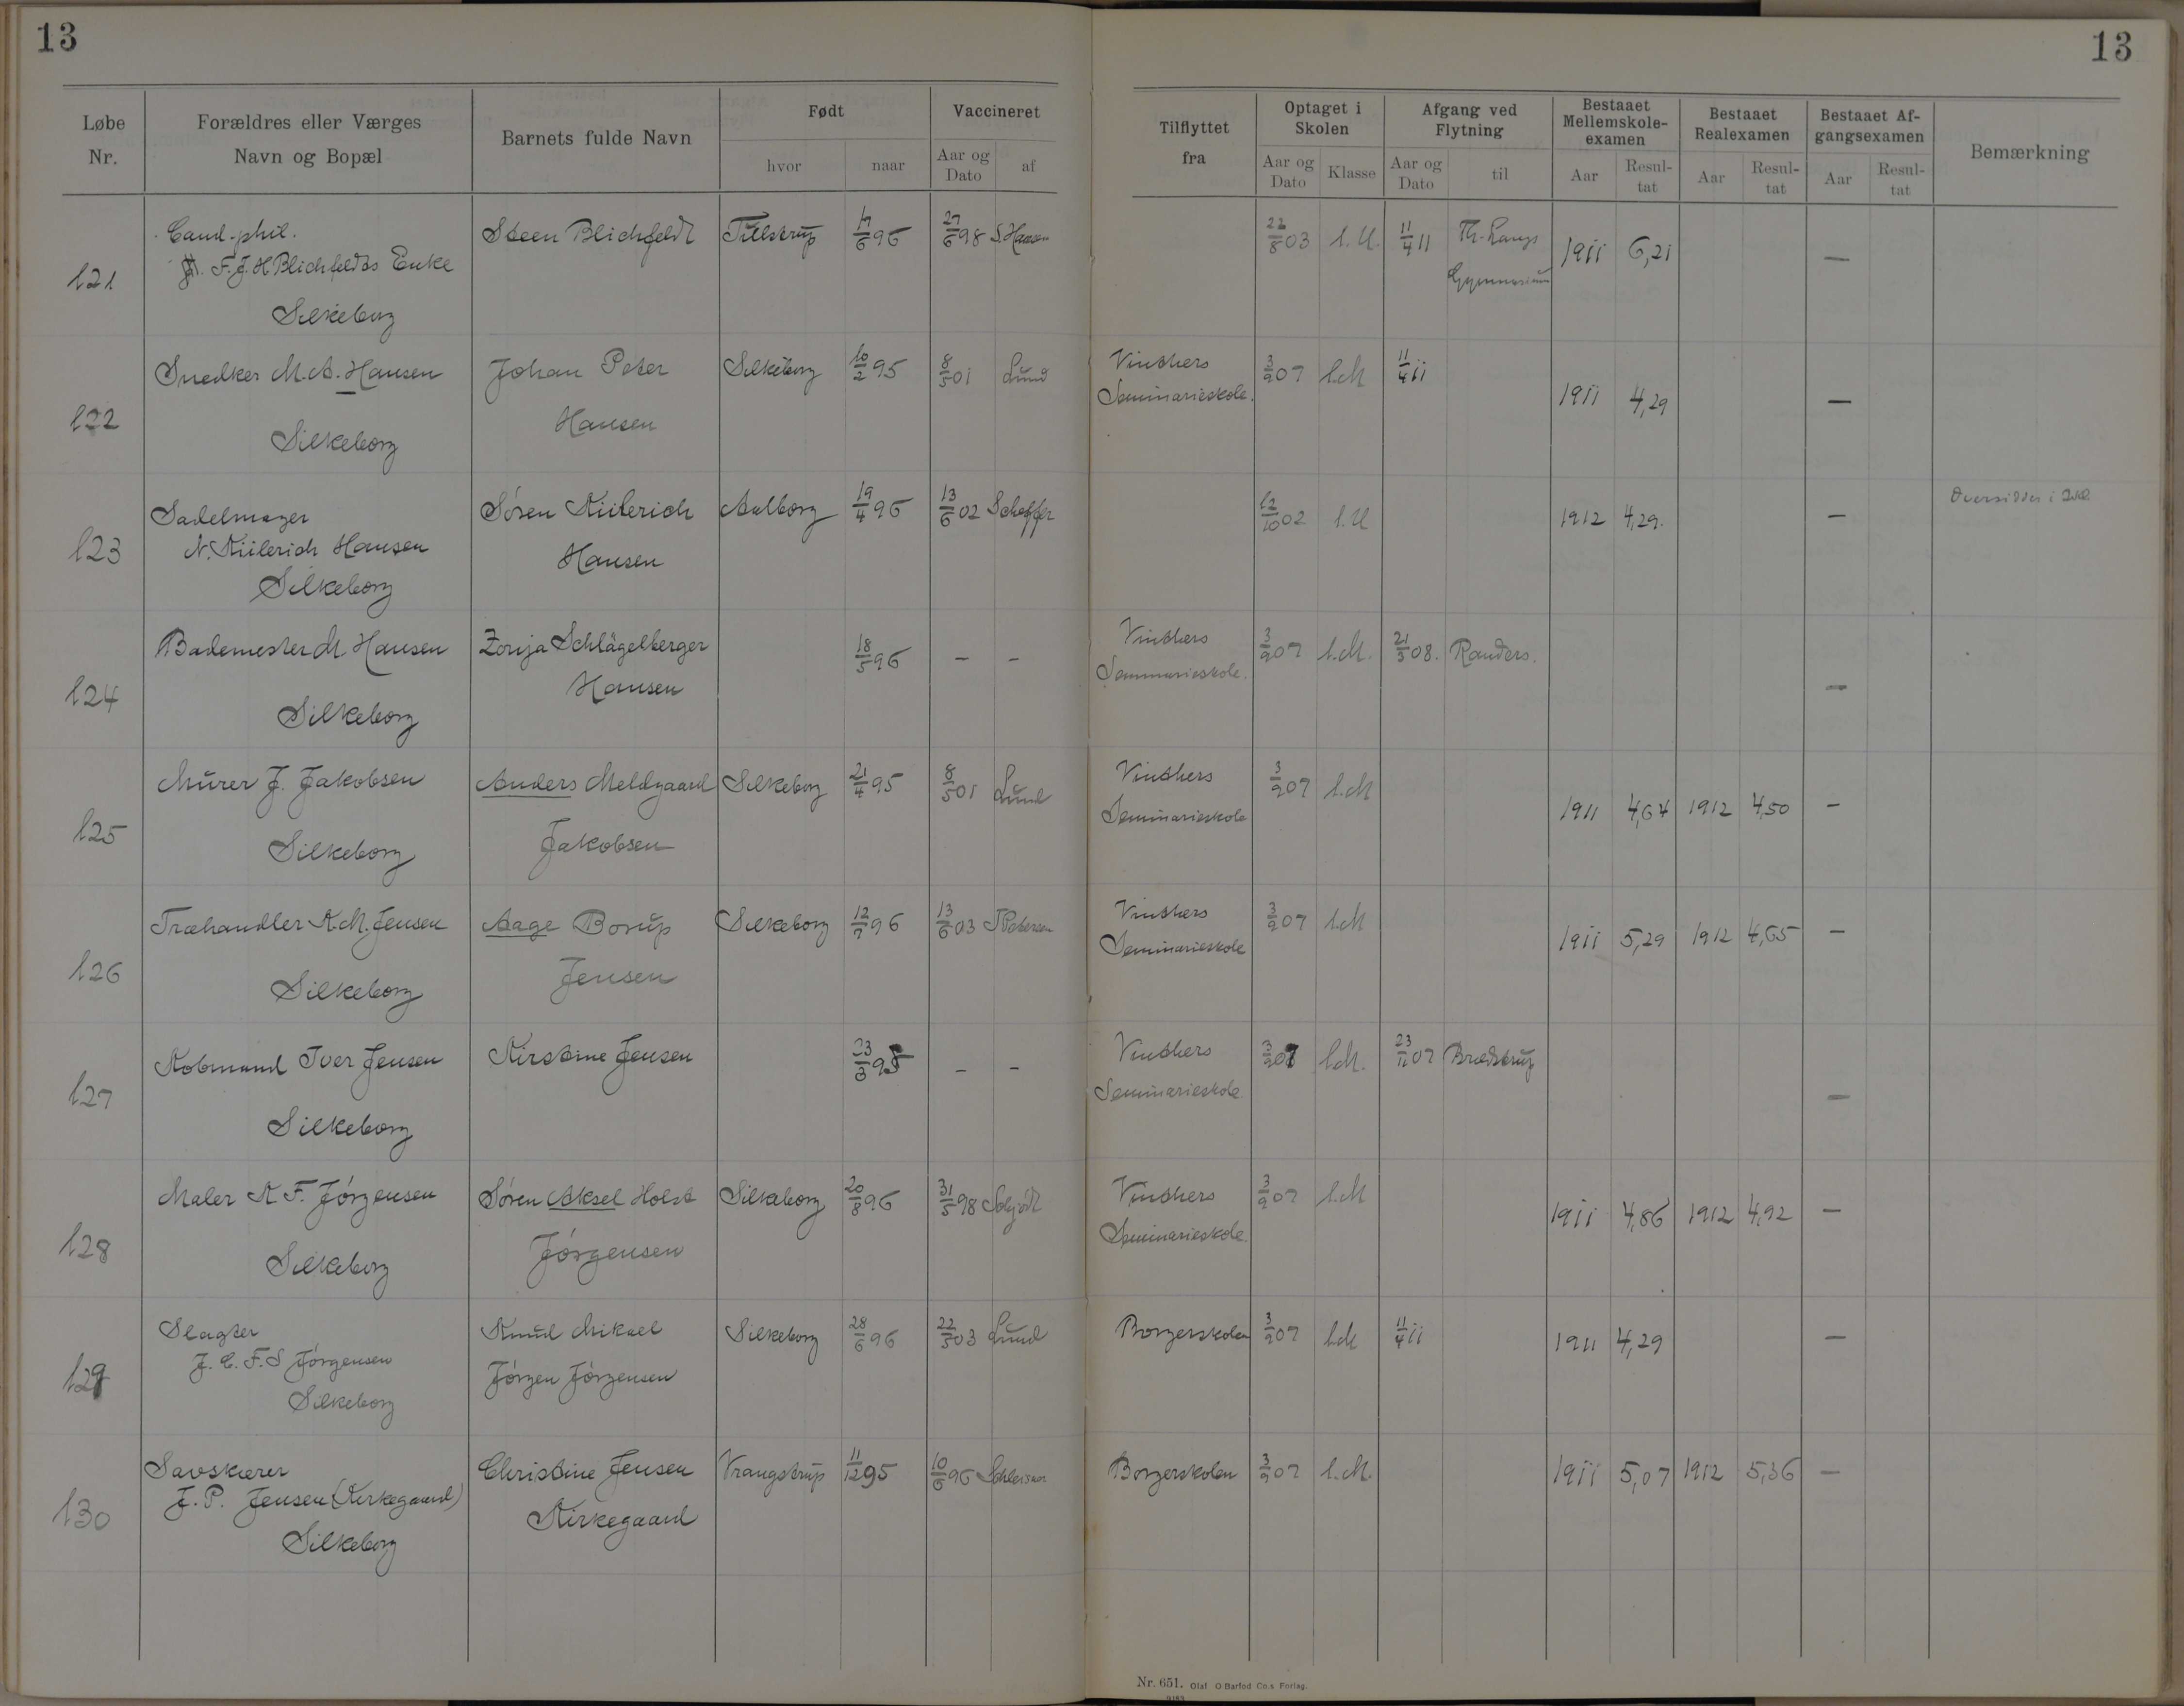 13
13
Løbe Nr.
Forældres eller Værges Navn og Bopæl
Barnets fulde Navn
Født
hvor
naar
Vaccineret
Aar og Dato
af
Tilflyttet fra
Optaget i Skolen
Aar og Dato
Klasse
Afgang ved Flytning
Aar og Dato
til
Bestaaet Mellemskole-examen
Aar
Resul-tat
Bestaaet Realexamen
Aar
Resul-tat
Bestaaet Af-gangsexamen
Aar
Resul-tat
Bemærkning
121 Cand. phil. F. J. H Blichfeldts Enke Silkeborg
Steen Blichfeldt Tulstrup 17/6 96 27/6 98 S. Hansen
22/8 03 1. U. 11/4 11 Th. Langs Gymnasium 1911 6,21 —
122 Snedker M. A. Hansen Silkeborg
Johan Peter Hansen Silkeborg 10/2 95 8/5 01 Lund
Vinthers Seminarieskole. 3/9 07 1.M 11/4 11 1911 4,29 —
123 Sadelmager N. Kiilerich Hansen Silkeborg
Sören Kiilerich Hansen Aalborg 19/4 96 13/6 02 Scheffer
12/10 02 1. U 1912 4,29. —
124 Bademester M Hansen Silkeborg
Zonja Schlägelberger Hansen 18/5 96 — —
Vinthers Seminarieskole. 3/9 07 1.M. 21/3 08. Randers. —
125 Murer J. Jakobsen Silkeborg
Anders Meldgaard Jakobsen Silkeborg 21/4 95 8/5 01 Lund
Vinthers Seminarieskole 3/9 07 1.M 1911 4,64 1912 4,50 —
126 Træhandler K. M. Jensen Silkeborg
Aage Borup Jensen Silkeborg 12/7 96 13/6 03 J Petersen
Vinthers Seminarieskole 3/9 07 1.M 1911 5,29 1912 4,65 —
127 Kobmand Iver Jensen Silkeborg
Kirstine Jensen 23/3 95 — —
Vinthers Seminarieskole. 3/9 07 1.M. 23/11 07 Brædstrup —
128 Maler K F. Jörgensen Silkeborg
Sören Aksel Holst Jörgensen Silkeborg 20/8 96 31/5 98
Vinthers Seminarieskole. 3/9 07 1.M 1911 4,86 1912 4,92 —
129 Slagter J. C. F. S Jörgensen Silkeborg
Knud Mikael Jörgen Jörgensen Silkeborg 28/6 96 22/5 03 Lund
Borgerskolen 3/9 07 1.M 11/4 11 1911 4,29 —
130 Savskærer J. P. Jensen (Kirkegaard) Silkeborg
Christine Jensen Kirkegaard Vrangstrup 11/12 95 10/6 96
Borgerskolen 3/9 07 1.M. 1911 5,07 1912 5,36 —
Nr. 651. Olaf O Barfod Co.s Forlag.